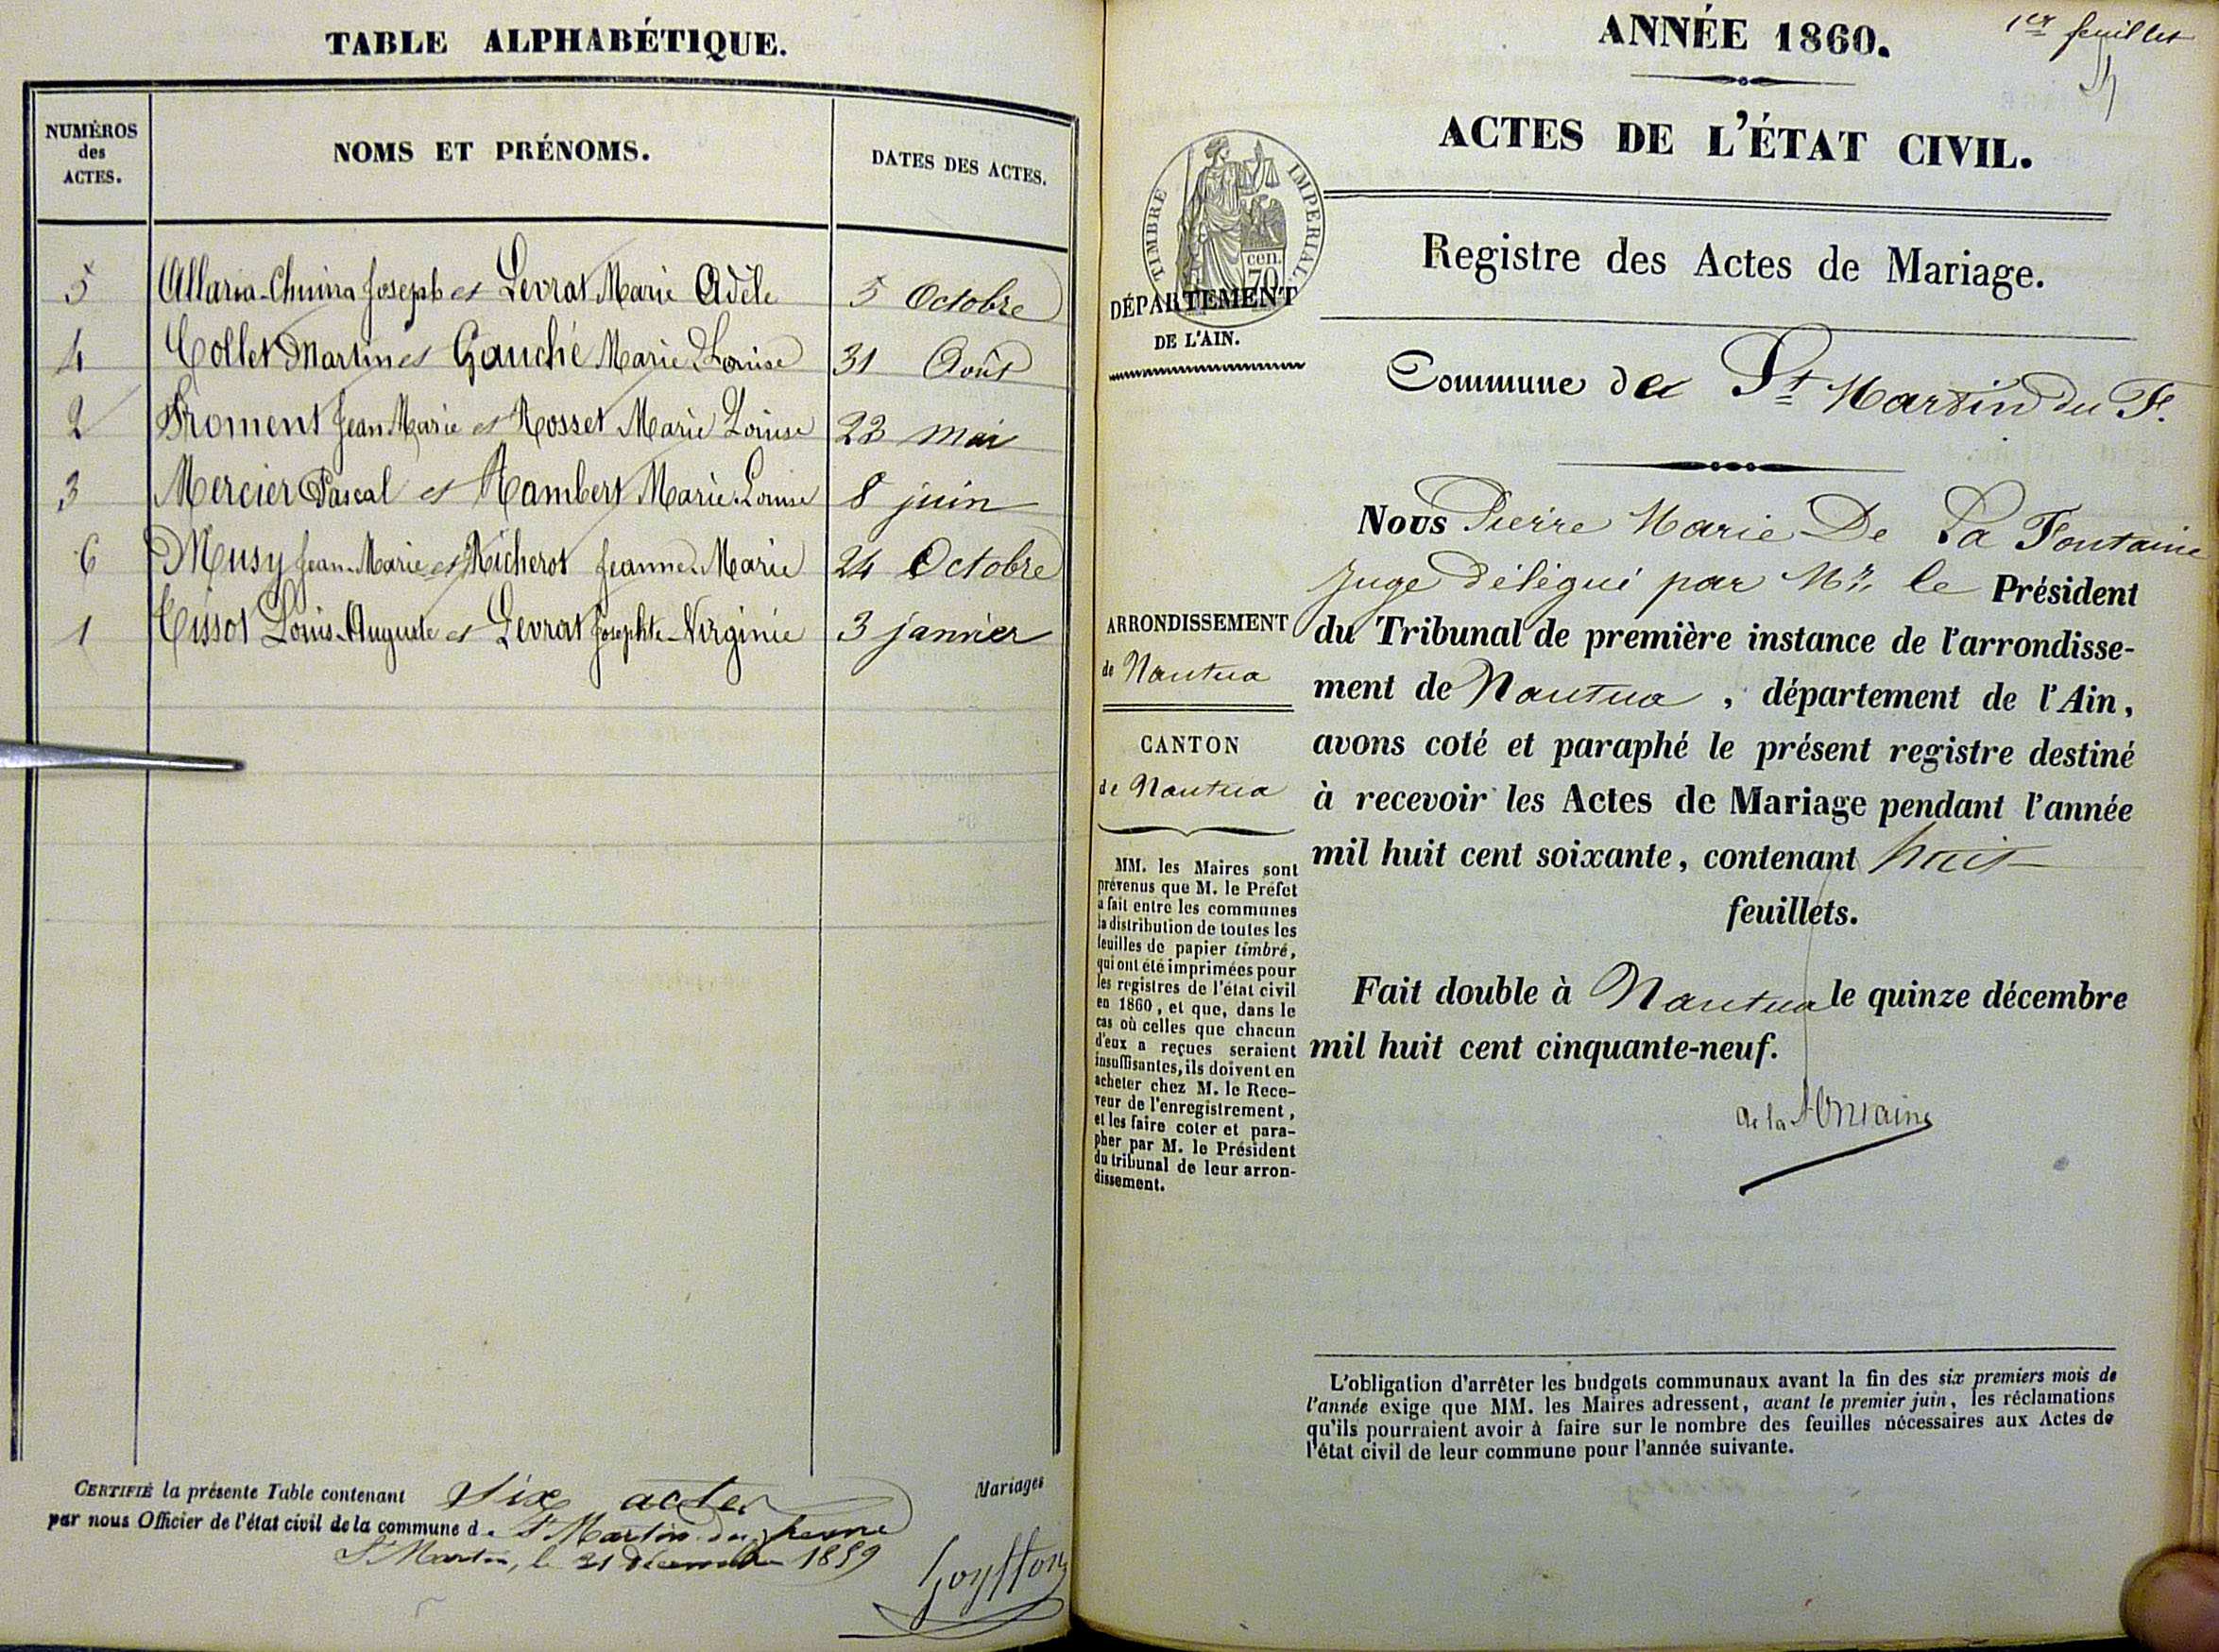 TABLE ALPHABÉTIQUE.
NUMÉROS
des
ACTES.
NOMS ET PRÉNOMS.
DATES DES ACTES.
5 Allaria-Chuina Joseph et Levrat Marie Adèle 5 Octobre
4 Collet Martin et Gauché Marie Louise 31 Août
2 Froment Jean Marie et Rosset Marie Louise 23 mai
3 Mercier Pascal et Rambert Marie Louise 8 juin
6 Musy Jean-Marie et Richerot Jeanne-Marie 24 Octobre
1 Tissot Louis-Auguste et Levrat Josephte-Virginie 3 janvier
CERTIFIÉ la présente Table contenant Six actes
Mariages
par nous Officier de l'état civil de la commune d. St Martin du fresne
St Martin, le 31 décembre 1859
ANNÉE 1860.
1er feuillet
ACTES DE L'ÉTAT CIVIL.
TIMBRE IMPERIAL
cen.
70
DÉPARTEMENT
DE L'AIN.
Registre des Actes de Mariage.
Commune de St Martin du F.
ARRONDISSEMENT
de Nantua
CANTON
de Nantua
MM. les Maires sont
prévenus que M. le Préfet
a fait entre les communes
la distribution de toutes les
feuilles de papier timbré,
qui ont été imprimées pour
les registres de l'état civil
en 1860, et que, dans le
cas où celles que chacun
d'eux a reçues seraient
insuffisantes, ils doivent en
acheter chez M. le Rece-
veur de l'enregistrement,
et les faire coter et para-
pher par M. le Président
du tribunal de leur arron-
dissement.
Nous Pierre Marie De La Fontaine
Juge délégué par Mr. le Président
du Tribunal de première instance de l'arrondisse-
ment de Nantua, département de l'Ain,
avons coté et paraphé le présent registre destiné
à recevoir les Actes de Mariage pendant l'année
mil huit cent soixante, contenant huit
feuillets.
Fait double à Nantua le quinze décembre
mil huit cent cinquante-neuf.
de la Fontaine
L'obligation d'arrêter les budgets communaux avant la fin des six premiers mois de
l'année exige que MM. les Maires adressent, avant le premier juin, les réclamations
qu'ils pourraient avoir à faire sur le nombre des feuilles nécessaires aux Actes de
l'état civil de leur commune pour l'année suivante.